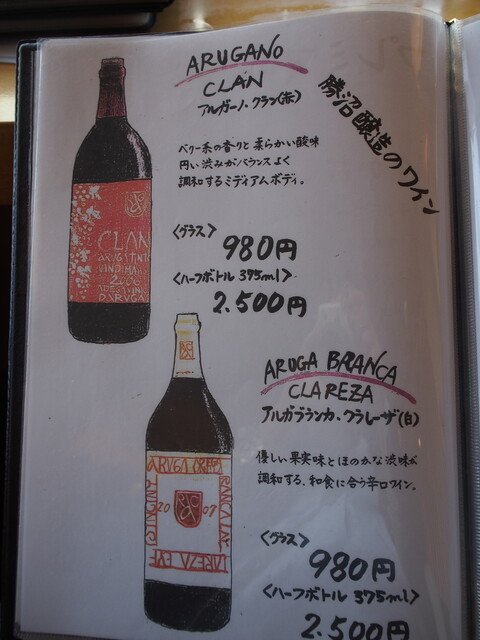 勝沼醸造のワイン
ARUGANO
CLAN
アルガーノ・クラン(赤)
ベリー系の香りと柔らかい酸味
円い渋みがバランスよく
調和するミディアムボディ。
〈グラス〉
980円
〈ハーフボトル 375ml〉
2.500円
CLAN
2006
ARUGA BRANCA
CLAREZA
アルガブランカ・クラレーザ(白)
優しい果実味とほのかな渋味が
調和する、和食に合う辛口ワイン。
〈グラス〉
980円
〈ハーフボトル 375ml〉
2.500円
ARUGA
20 07